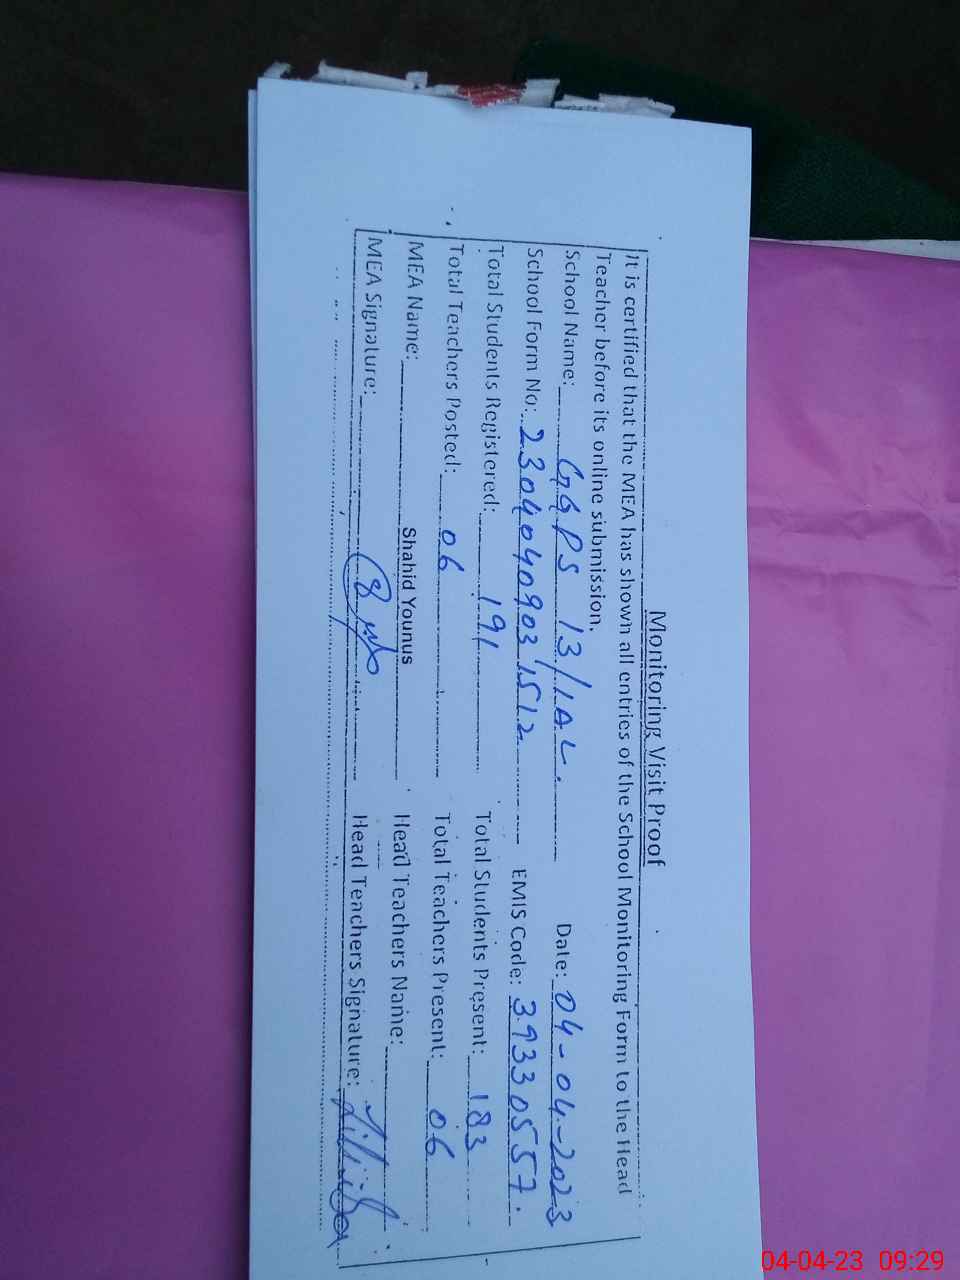 Monitoring Visit Proof
It is certified that the MEA has shown all entries of the School Monitoring Form to the Head
Teacher before its online submission.
School Name: GGPS 13/1AL. Date: 04-04-2023
School Form No: 23040409031512 EMIS Code: 39330557.
Total Students Registered: 191 Total Students Present: 183
Total Teachers Posted: 06 Total Teachers Present: 06
MEA Name: Shahid Younus Head Teachers Name:
MEA Signature: Head Teachers Signature:
04-04-23 09:29